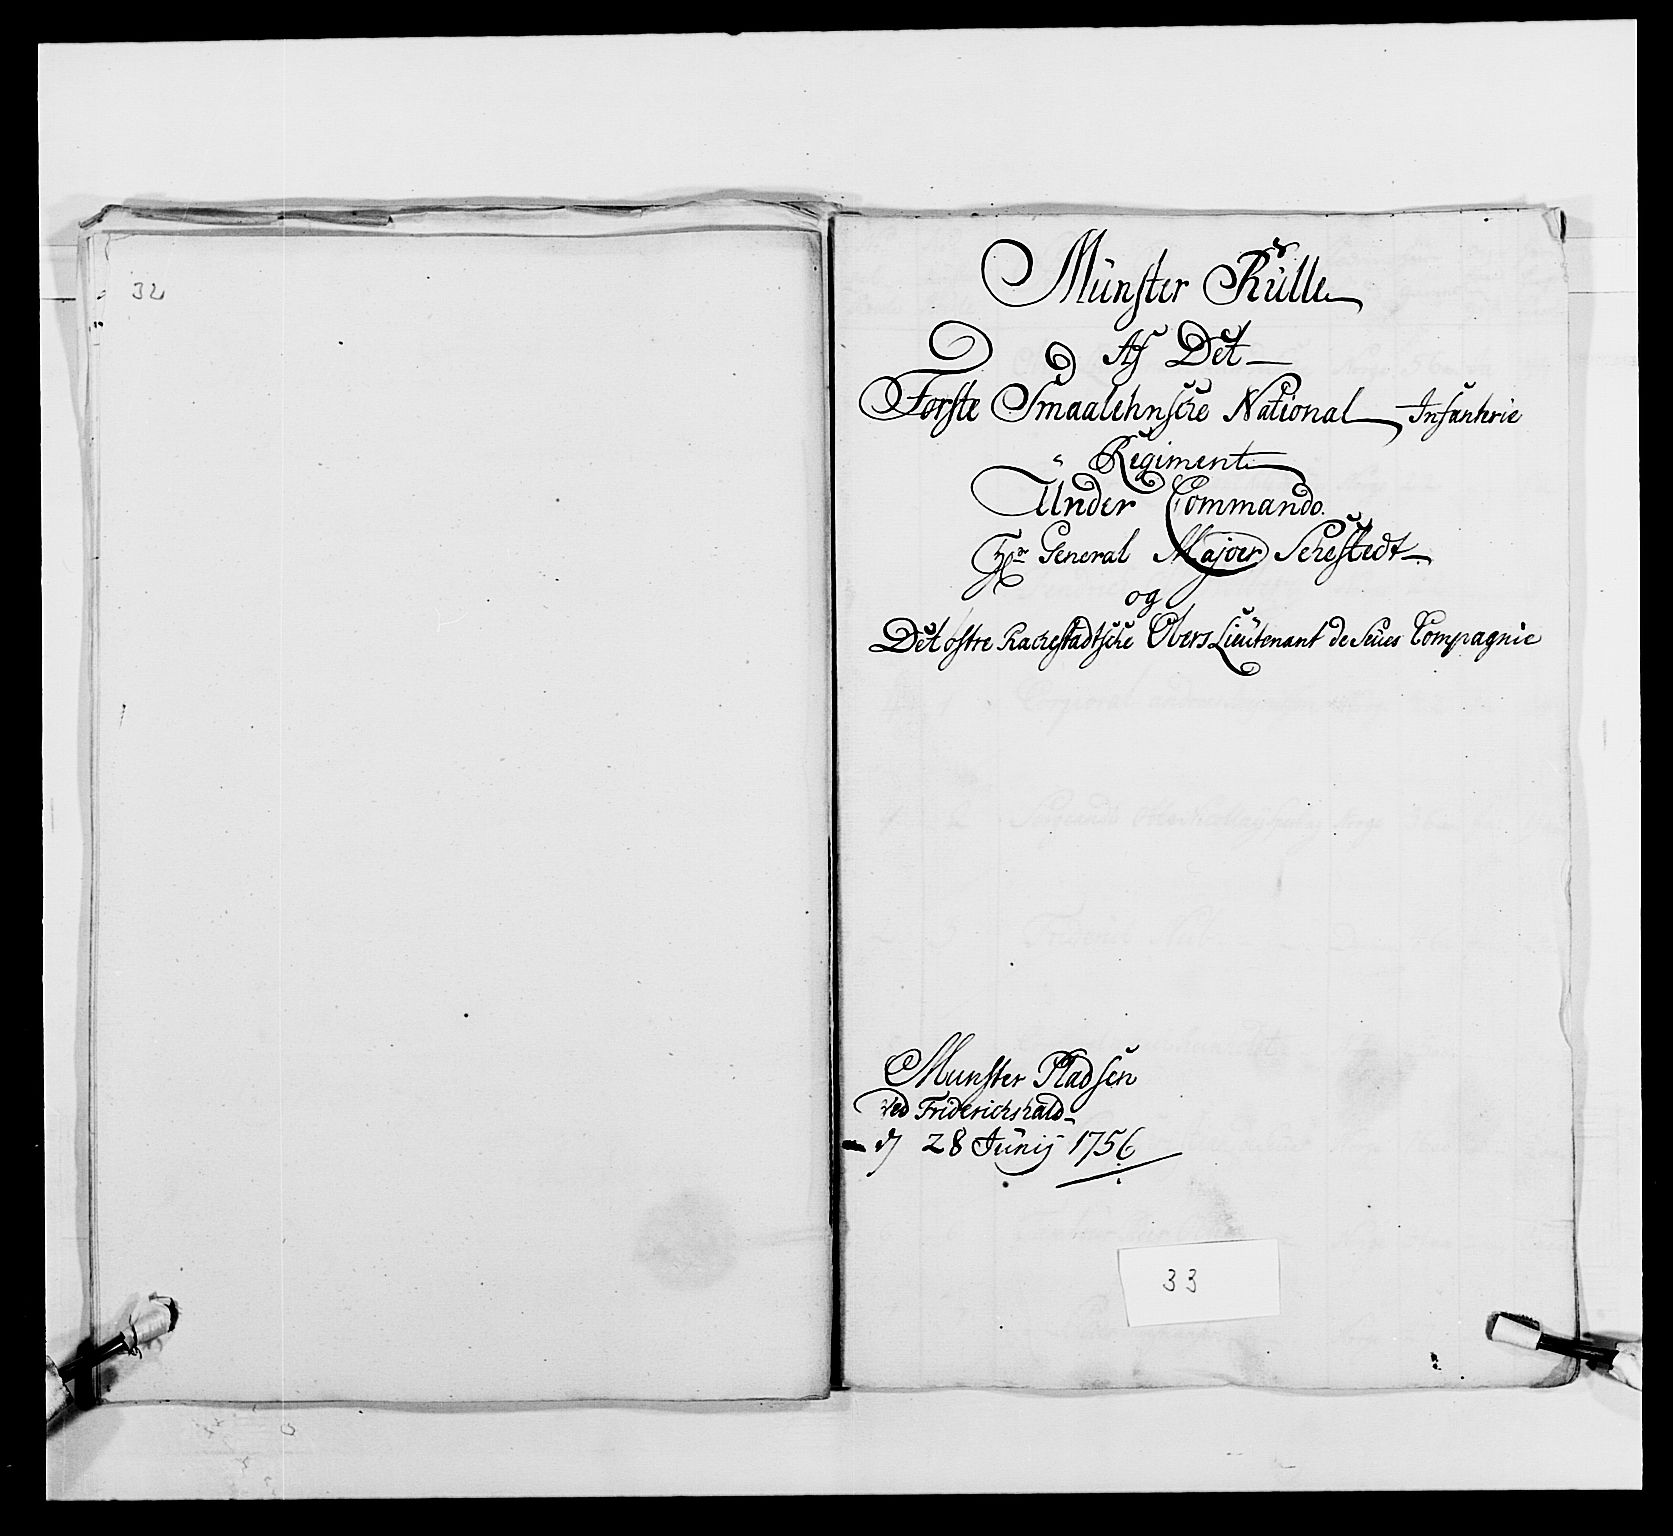 32
Münster Rülle
Af Det
Forste Smaalehnsche National Infanterie
Regiment
Under Commando.
Hr General Majoer Sehestedt
og
Det ostre Rackestadtsche Obers Lieütenant de Seües Compagnie
Munster Pladsen
ved Friderichshald
d 28 Jünij 1756
33